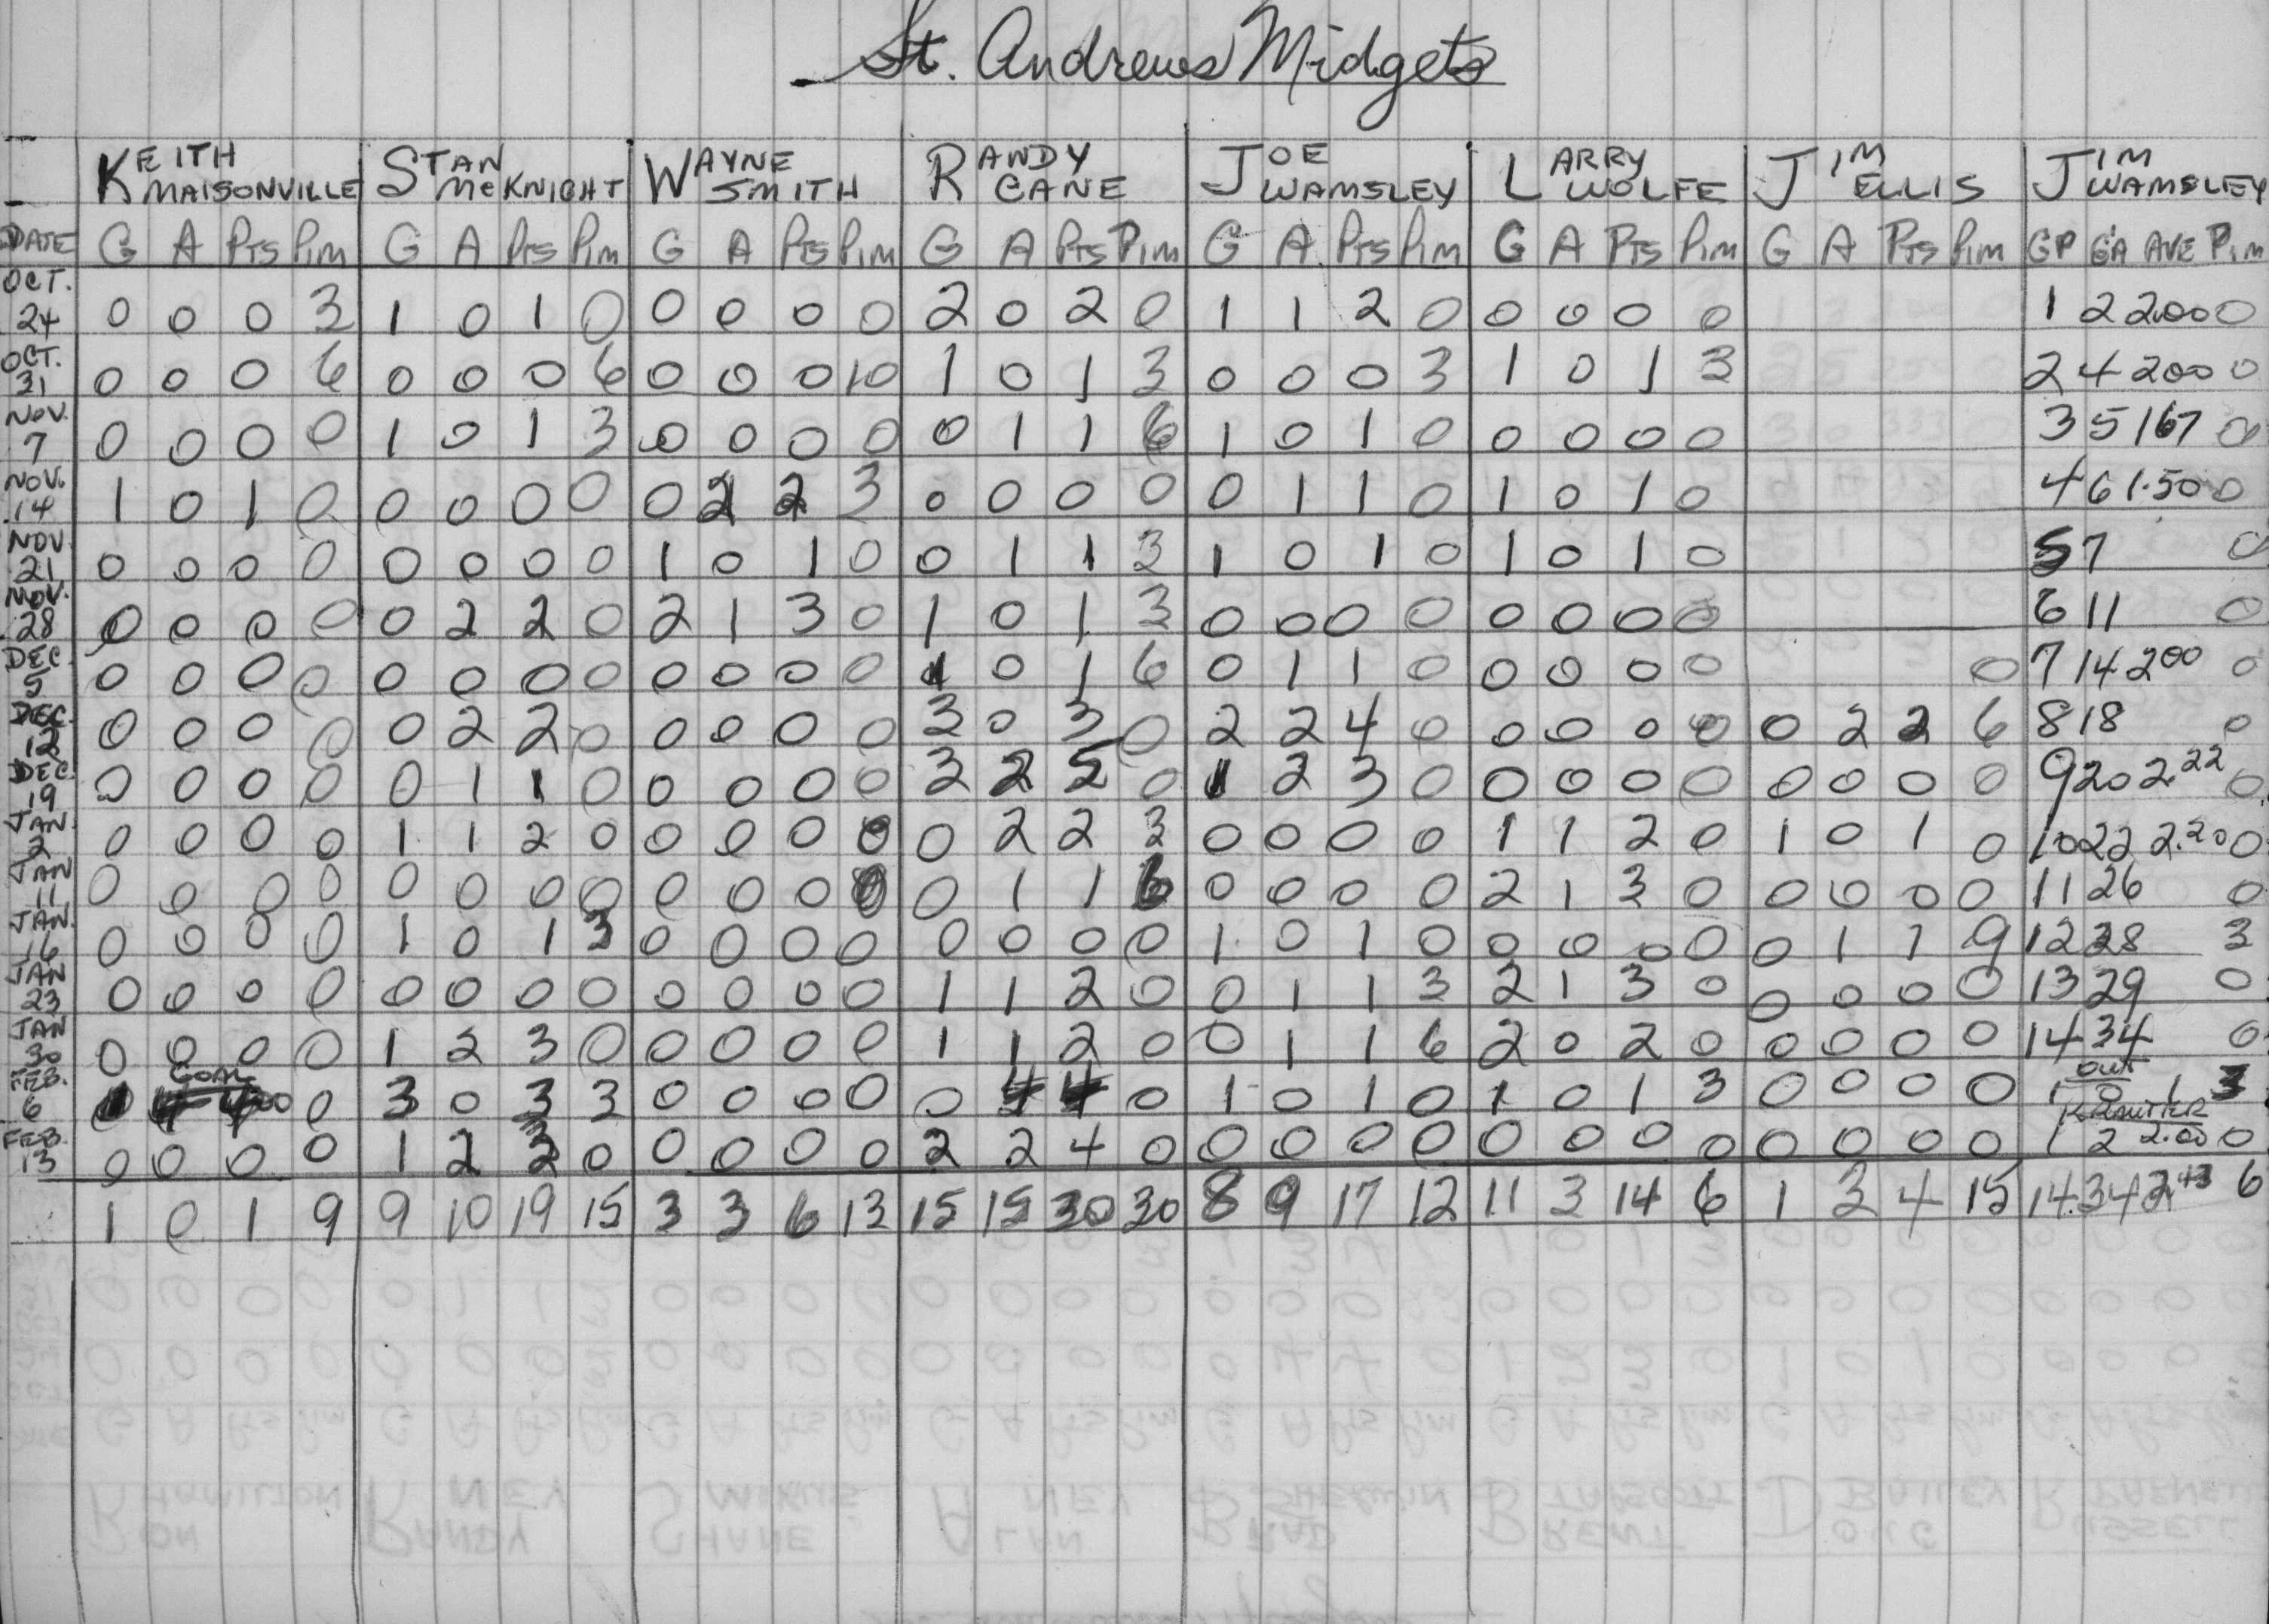 St. Andrews Midgets
KEITH MAISONVILLE STAN McKNIGHT WAYNE SMITH RANDY CANE JOE WAMSLEY LARRY WOLFE JIM ELLIS JIM WAMSLEY
DATE G A PTS PIM G A PTS PIM G A PTS PIM G A PTS PIM G A PTS PIM G A PTS PIM G A PTS PIM GP GA AVE PIM
OCT. 24 0 0 0 3 1 0 1 0 0 0 0 0 2 0 2 0 1 1 2 0 0 0 0 0 1 2 2.00 0
OCT. 31 0 0 0 6 0 0 0 6 0 0 0 10 1 0 1 3 0 0 0 3 1 0 1 3 2 4 200 0
NOV. 7 0 0 0 0 1 0 1 3 0 0 0 0 0 1 1 6 1 0 1 0 0 0 0 0 3 5 167 0
NOV. 14 1 0 1 0 0 0 0 0 0 2 2 3 0 0 0 0 0 1 1 0 1 0 1 0 4 6 1.50 0
NOV. 21 0 0 0 0 0 0 0 0 1 0 1 0 0 1 1 3 1 0 1 0 1 0 1 0 5 7 0
NOV. 28 0 0 0 0 0 2 2 0 2 1 3 0 1 0 1 3 0 0 0 0 0 0 0 0 6 11 0
DEC. 5 0 0 0 0 0 0 0 0 0 0 0 0 1 0 1 6 0 1 1 0 0 0 0 0 0 7 14 200 0
DEC. 12 0 0 0 0 0 2 2 0 0 0 0 0 3 0 3 0 2 2 4 0 0 0 0 0 0 2 2 6 8 18 0
DEC. 19 0 0 0 0 0 1 1 0 0 0 0 0 3 2 5 0 1 2 3 0 0 0 0 0 0 0 0 0 9 20 2.22 0
JAN. 2 0 0 0 0 1 1 2 0 0 0 0 0 0 2 2 3 0 0 0 0 1 1 2 0 1 0 1 0 10 22 2.20 0
JAN 11 0 0 0 0 0 0 0 0 0 0 0 0 0 1 1 6 0 0 0 0 2 1 3 0 0 0 0 0 11 26 0
JAN. 16 0 0 0 0 1 0 1 3 0 0 0 0 0 0 0 0 1 0 1 0 0 0 0 0 0 1 1 9 12 28 3
JAN 23 0 0 0 0 0 0 0 0 0 0 0 0 1 1 2 0 0 1 1 3 2 1 3 0 0 0 0 0 13 29 0
JAN 30 0 0 0 0 1 2 3 0 0 0 0 0 1 1 2 0 0 1 1 6 2 0 2 0 0 0 0 0 14 34 0
FEB. 6 GOAL 0 0 3 0 3 3 0 0 0 0 0 4 4 0 1 0 1 0 1 0 1 3 0 0 0 0 out 1 3
FEB. 13 0 0 0 0 1 2 3 0 0 0 0 0 2 2 4 0 0 0 0 0 0 0 0 0 0 0 0 0 1 2 2.00 0
1 0 1 9 9 10 19 15 3 3 6 13 15 15 30 30 8 9 17 12 11 3 14 6 1 3 4 15 14 34 2.43 6